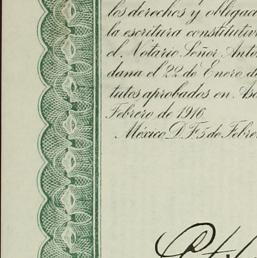 los derechos y obligac
la escritura constitutiv
el Notario Señor Anto
dana el 22 de Enero de
tutos aprobados en As
Febrero de 1916.
México, D. F. 5 de Febre